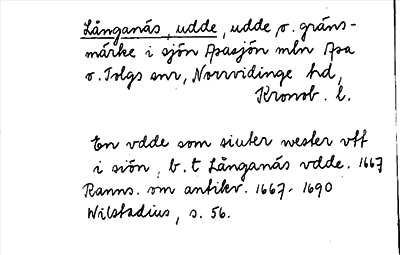 Långanäs, udde, udde o. gräns-
märke i sjön Asasjön mln Asa
o. Tolgs snr, Norrvidinge hd,
Kronob. l.
En vdde som siuter wester vtt
i siön, b. t Långanäs vdde. 1667
Ranns. om antikv. 1667-1690
Wilstadius, s. 56.